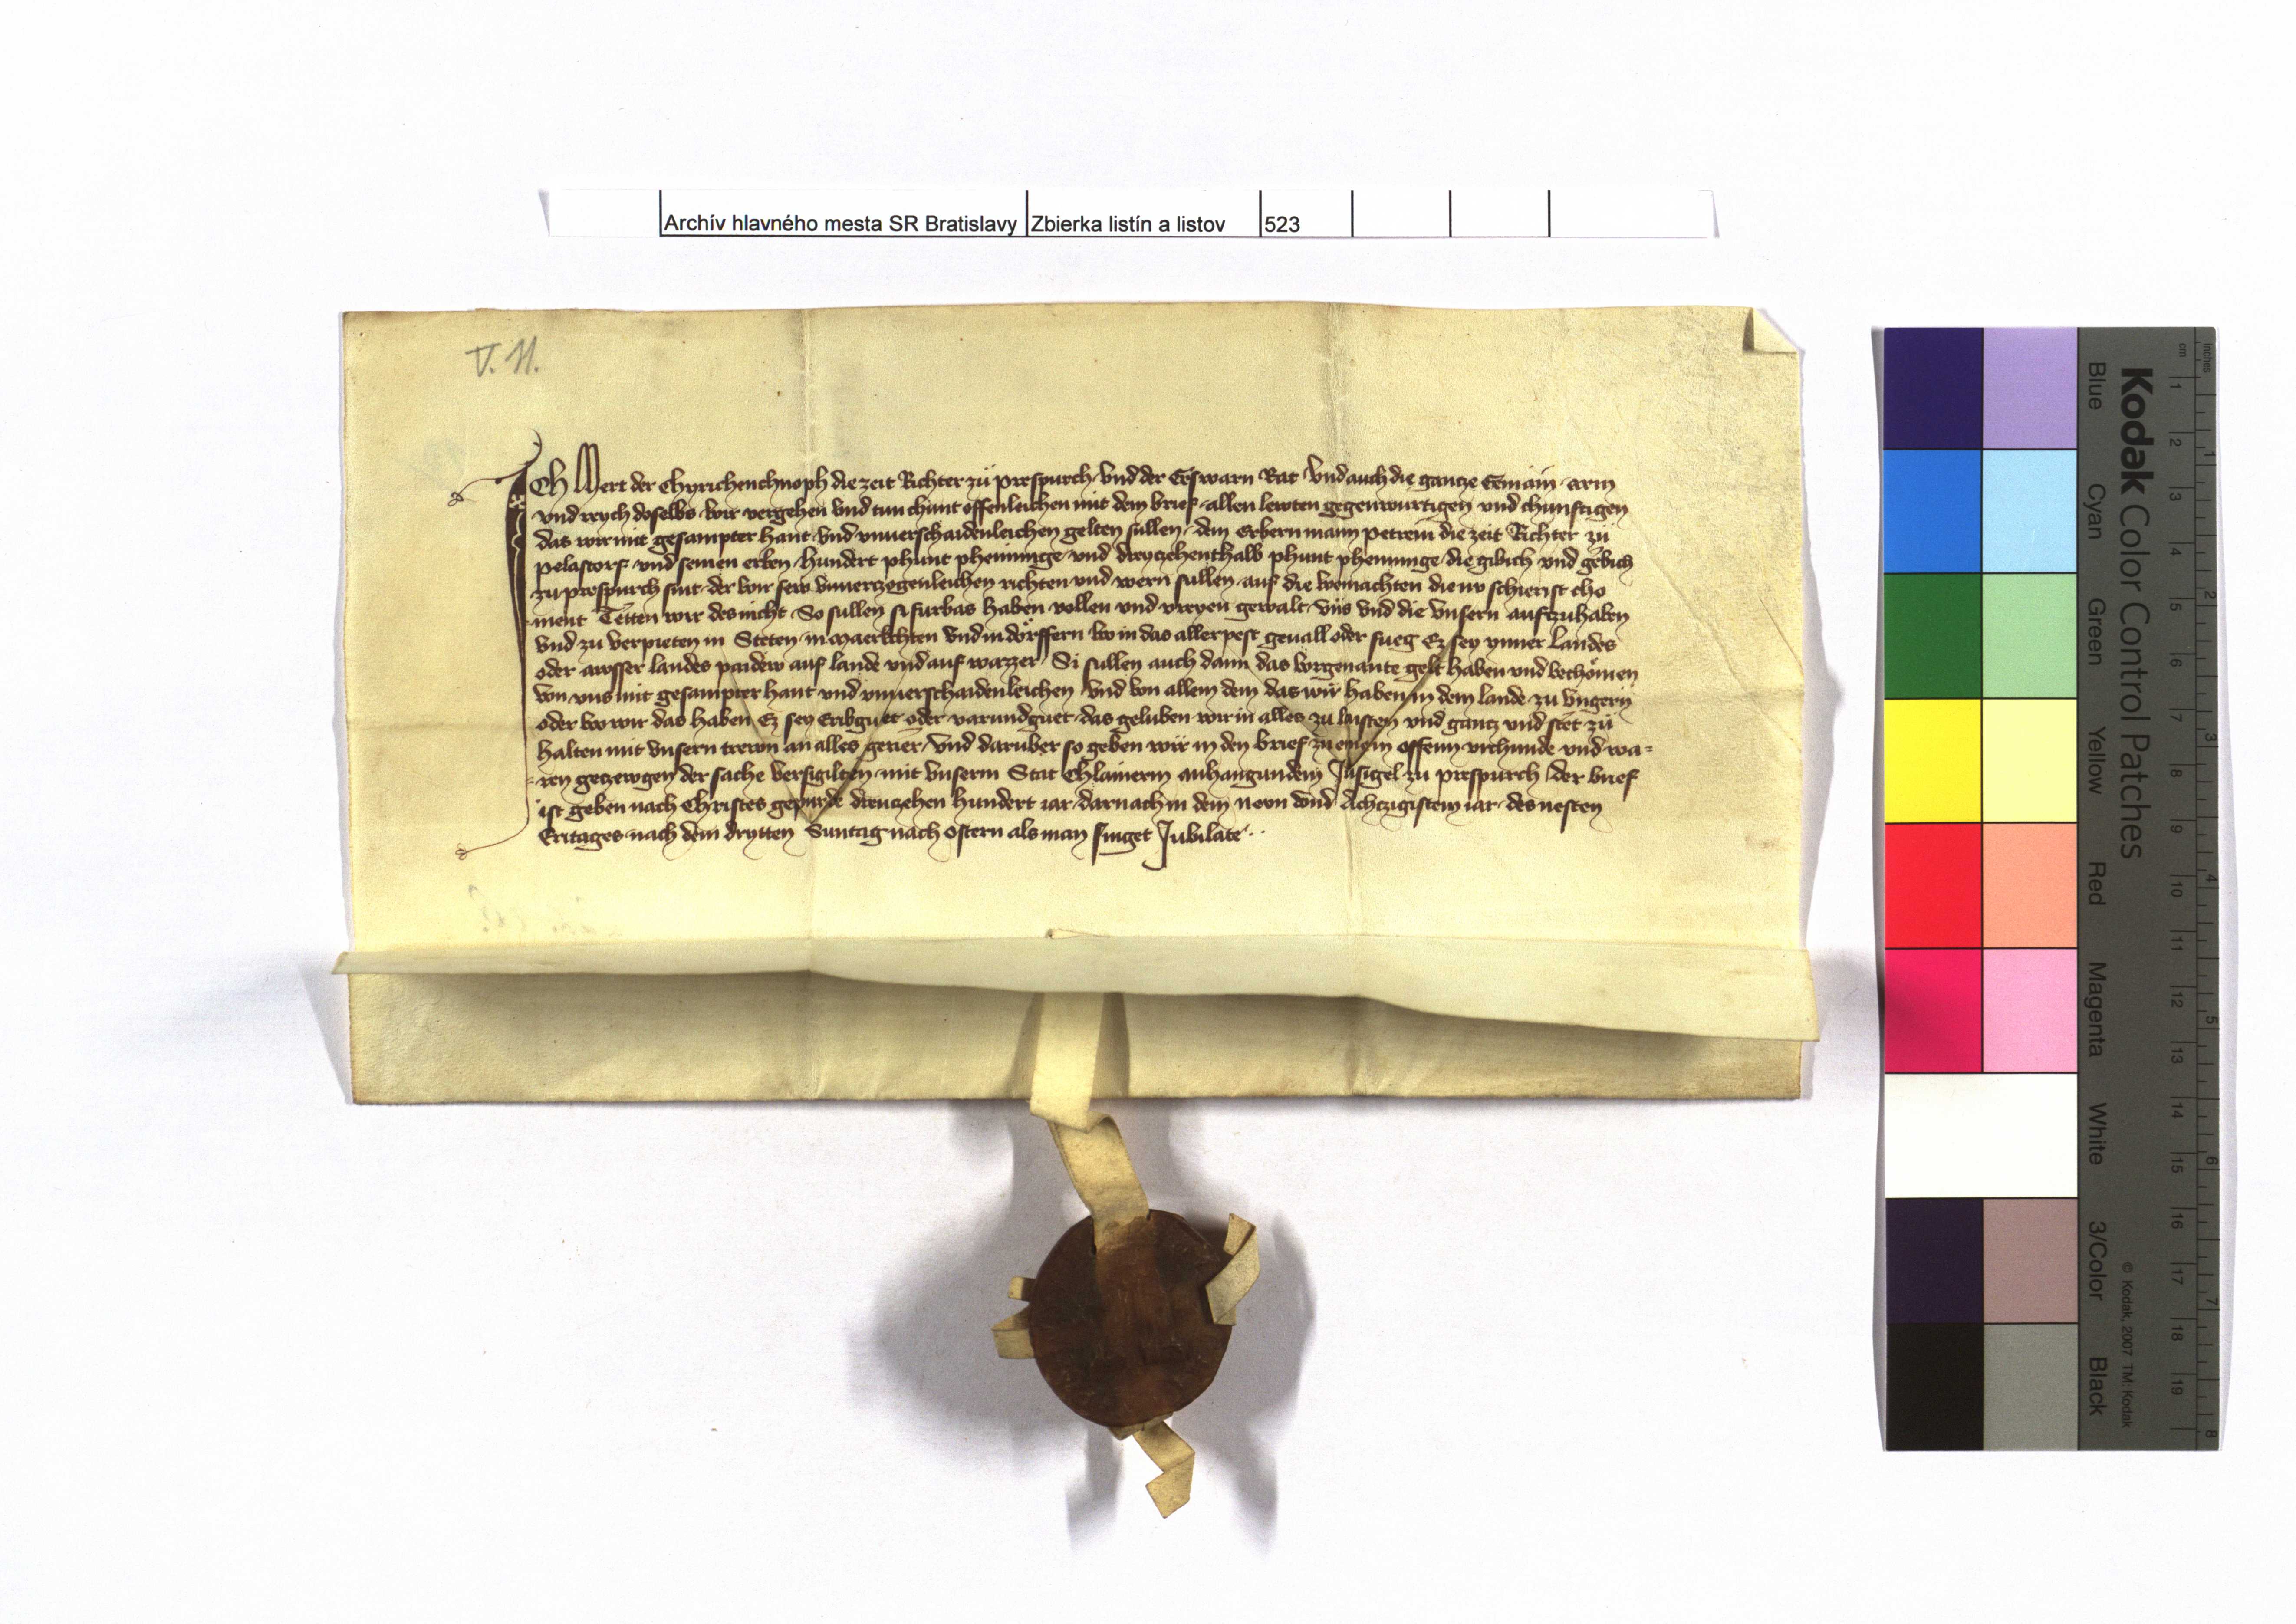 Archív hlavného mesta SR Bratislavy Zbierka listín a listov 523
V. 11.
Ich Wert der Chyrichenchnoph die zeit Richter zü prespurch vnd der Geswarn Rat vnd auch die gancze Gemäin arm
vnd reych doselbs wir vergehen vnd tun chunt offenleichen mit dem brief allen lewten gegenwurtigen vnd chunftigen
das wir mit gesampter hant vnd vnuerschaidenleichen gelten sullen dem Erbern mann petrein die zeit Richter zü
pelastorf vnd seinen erben hundert phunt phenninge vnd dreyczehenthalb phunt phenninge die gibich vnd gebich
zu prespurch sint der wir sew vnuerczogenleichen richten vnd wern sullen auf die weinachten die nv schierist cho
ment Tetten wir des nicht So sullen si furbas haben vollen vnd vreyen gewalt vns vnd die vnsern aufczuhaben
vnd zu verpieten in Steten in maerkchten vnd in dörffern wo in das allerpest geuall oder fueg Ez sey ynner landes
oder awsser landes paidew auf lande vnd auf wazzer Si sullen auch dann das vorgenante gelt haben vnd bechömen
von vns mit gesampter hant vnd vnuerschaidenleichen vnd von allem dem das wir haben in dem lande zu vngern
oder wo wir das haben Ez sey Eribguet oder varundguet das geluben wir in alles zu laisten vnd gancz vnd stet zü
halten mit vnsern trewn an alles geuer vnd darüber so geben wir in den brief zu einem offenn vrchunde vnd wa=
=ren geczewgen der sache versigilten mit vnserm Stat Chlainerm anhangundem Insigel zu prespurch der brief
ist geben nach Christes gepurde drewczehen hundert iar darnach in dem newn vnd Achczigistem iar des nesten
Eritages nach dem drytten Suntag nach ostern als man singet Jubilate
Kodak Color Control Patches
Blue Cyan Green Yellow Red Magenta White 3/Color Black
© Kodak, 2007 TM: Kodak
cm 1 2 3 4 5 6 7 8 9 10 11 12 13 14 15 16 17 18 19
Inches 1 2 3 4 5 6 7 8